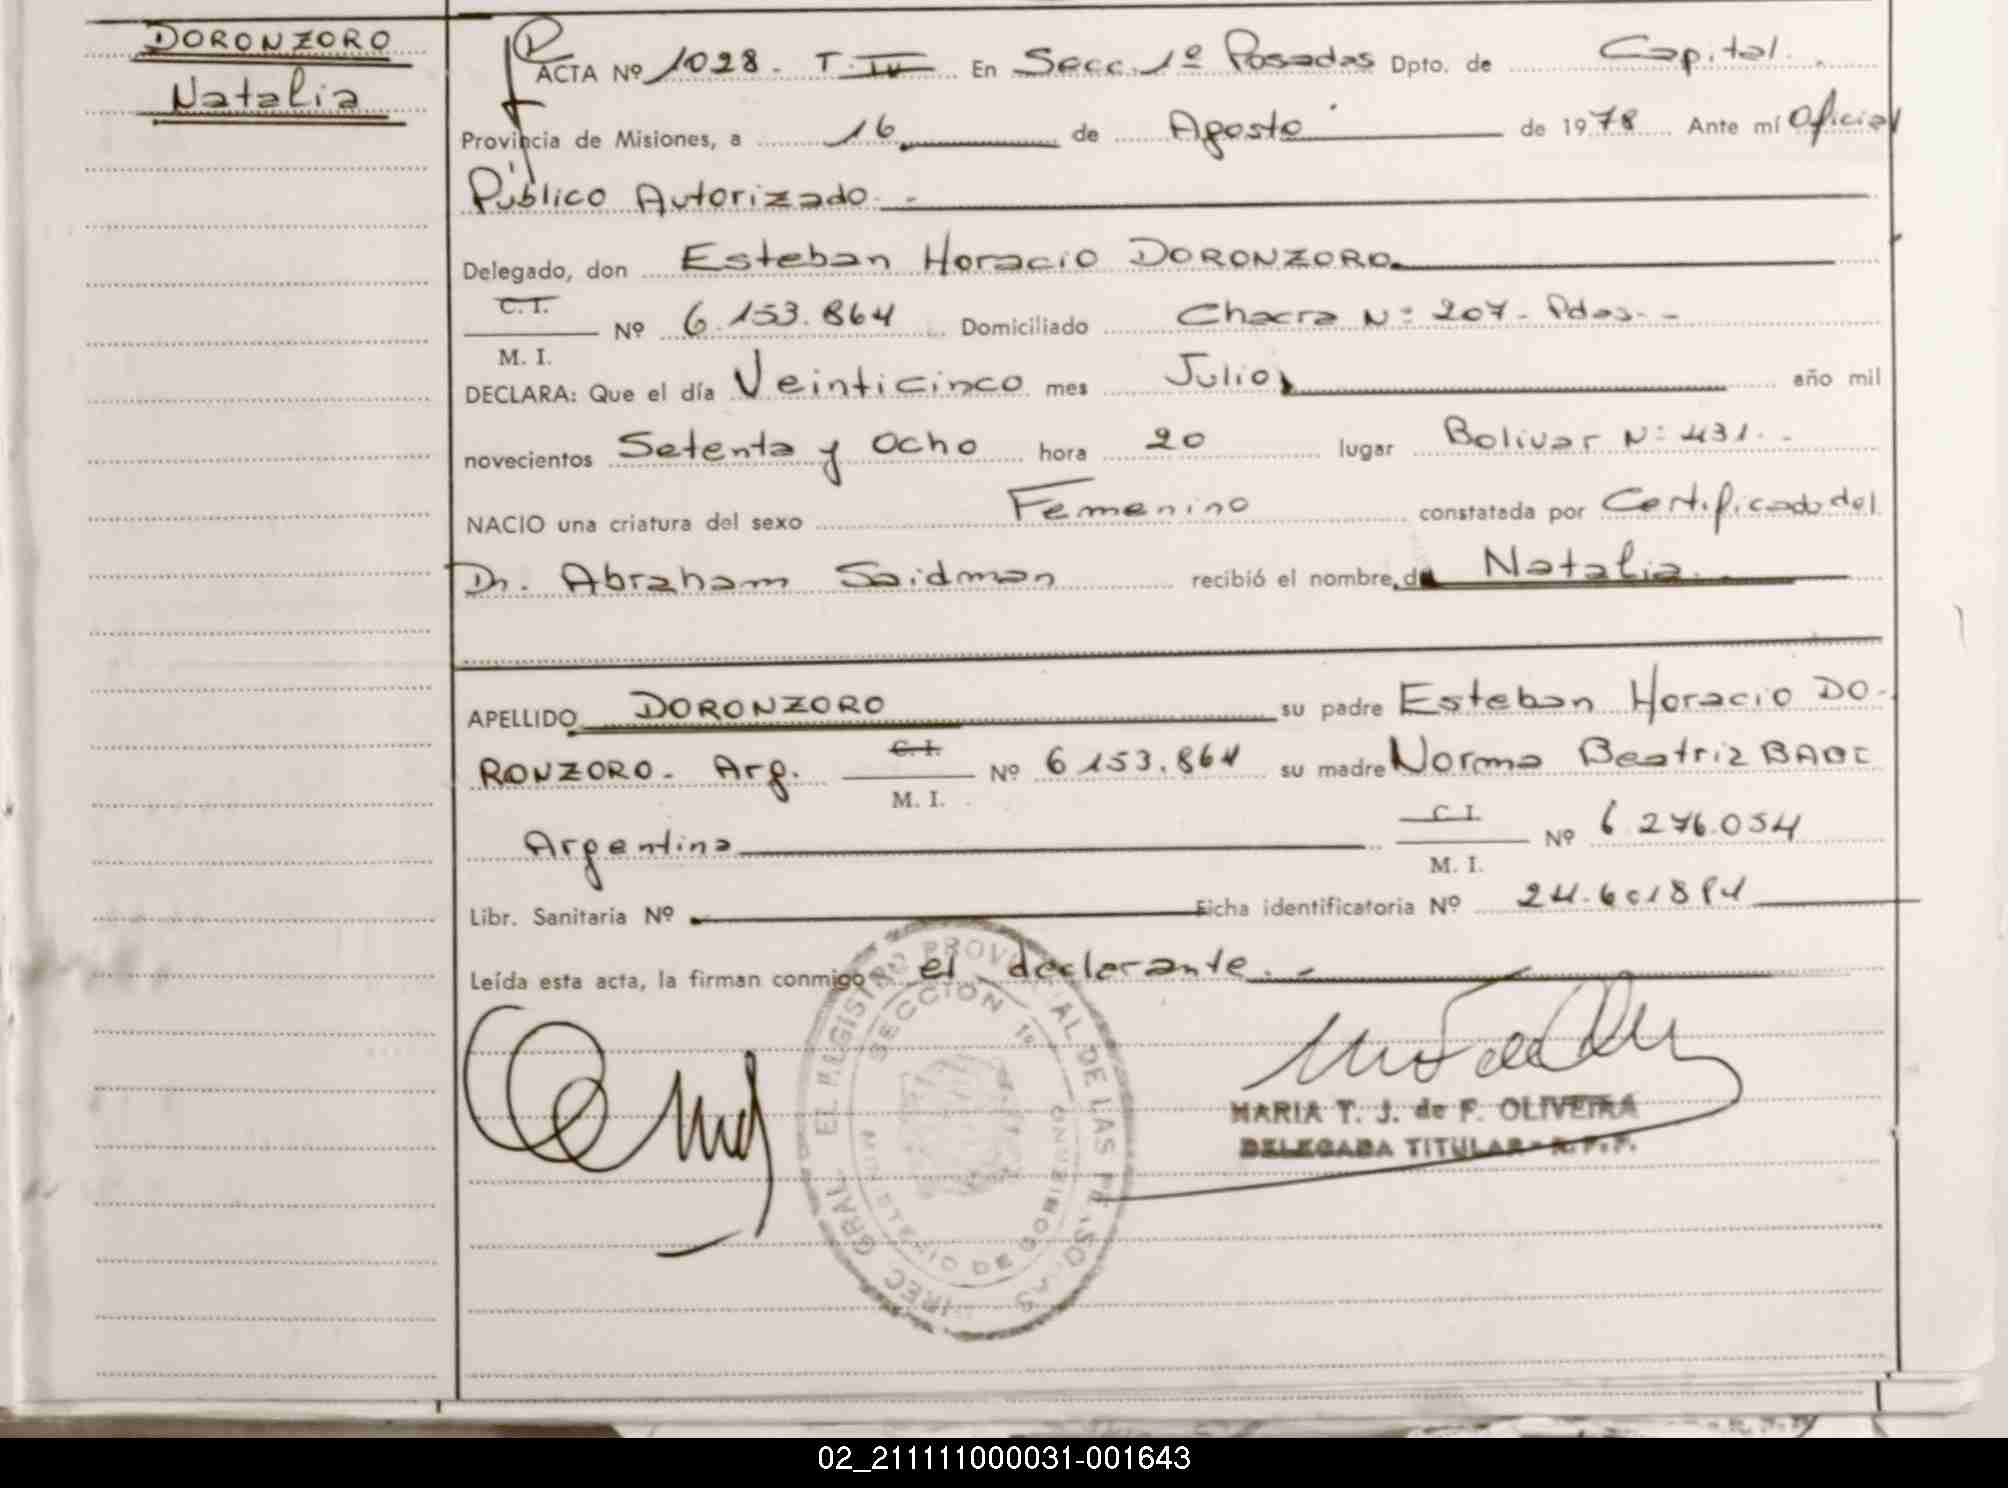 DORONZORO
Natalia
ACTA Nº 1028. T. IV En Secc. 1º Posadas Dpto. de Capital.
Provincia de Misiones, a 16 de Agosto de 1978 Ante mí Oficial
Público Autorizado.-
Delegado, don Esteban Horacio DORONZORO
C. I.
Nº 6.153.864 Domiciliado Chacra Nº 207- Pdas.-
M. I.
DECLARA: Que el día Veinticinco mes Julio año mil
novecientos Setenta y Ocho hora 20 lugar Bolivar Nº 431.-
NACIO una criatura del sexo Femenino constatada por Certificado del
Dr. Abraham Saidman recibió el nombre de Natalia.
APELLIDO DORONZORO su padre Esteban Horacio DO-
RONZORO. Arg. C. I. Nº 6 153.864 su madre Norma Beatriz
M. I.
Argentina C. I. Nº 6 276.054
M. I.
Libr. Sanitaria Nº Ficha identificatoria Nº
Leída esta acta, la firman conmigo el declarante.-
DIREC GRAL EL REGISTRO PROVINCIAL DE LAS PERSONAS
SECCION 1ª
MINISTERIO DE GOBIERNO
MARIA T. J. de F. OLIVEIRA
DELEGADA TITULAR - R.P.P.
02_211111000031-001643